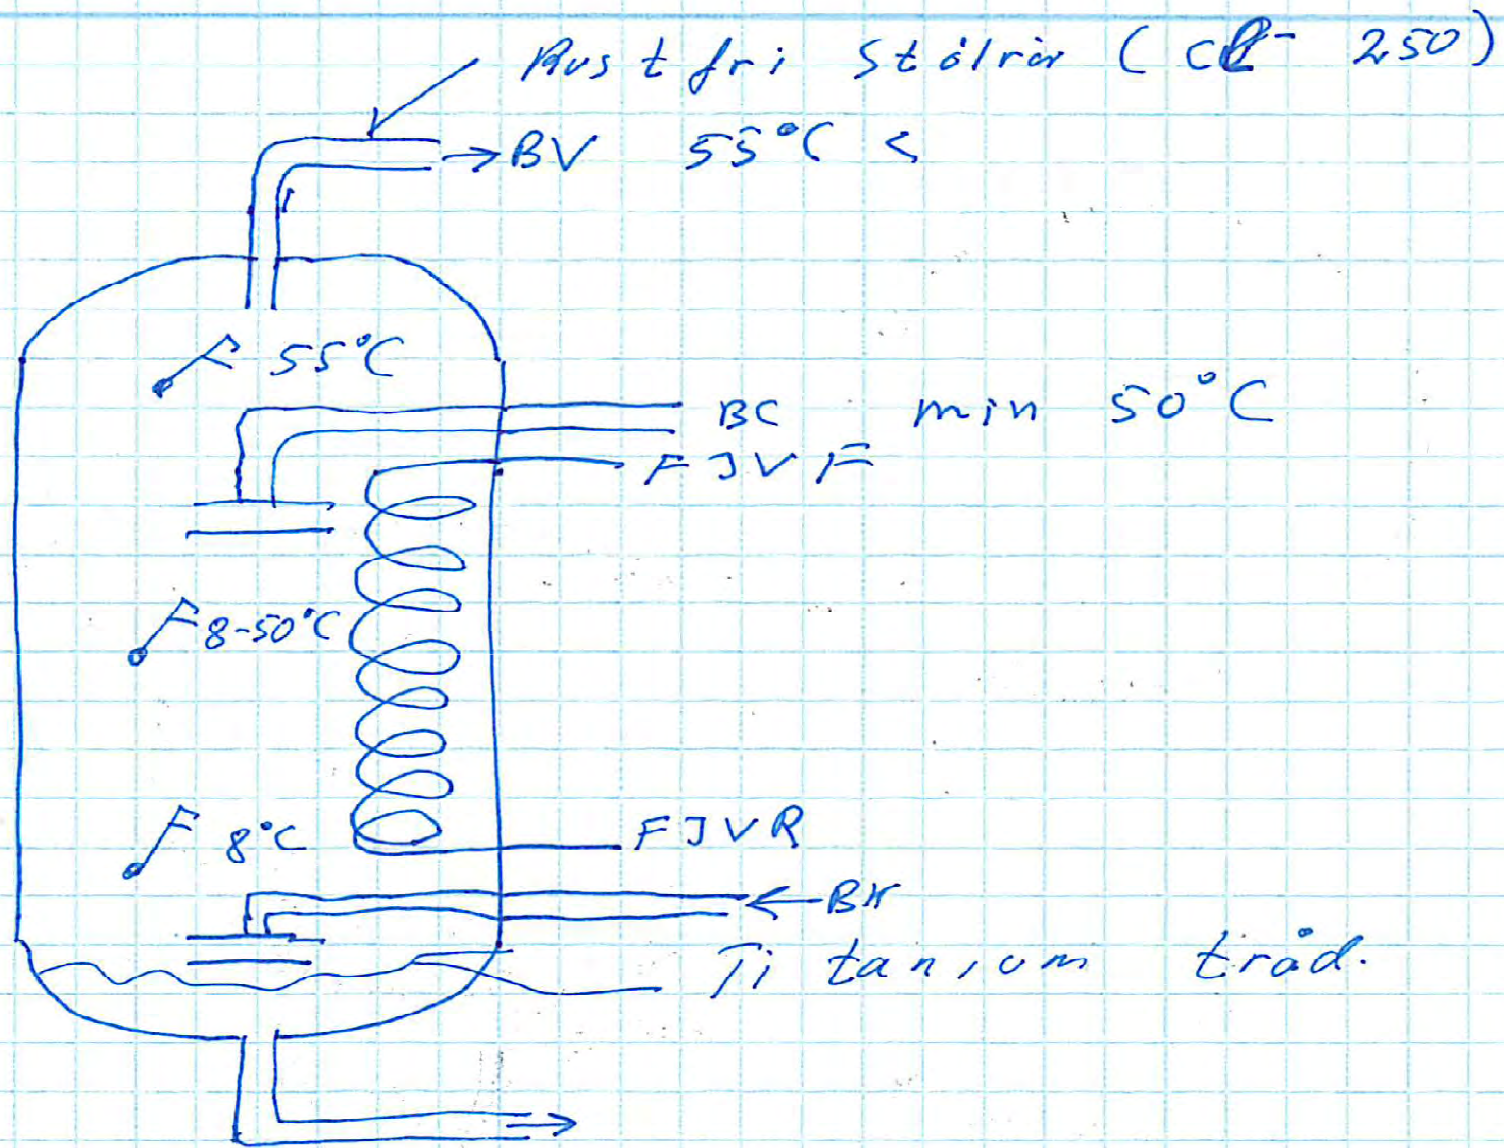 Rustfri Stålrør (Cl⁻ 250)
BV 55°C <
55°C
BC min 50°C
FJVF
8-50°C
FJVR
8°C
BK
Titanium tråd.